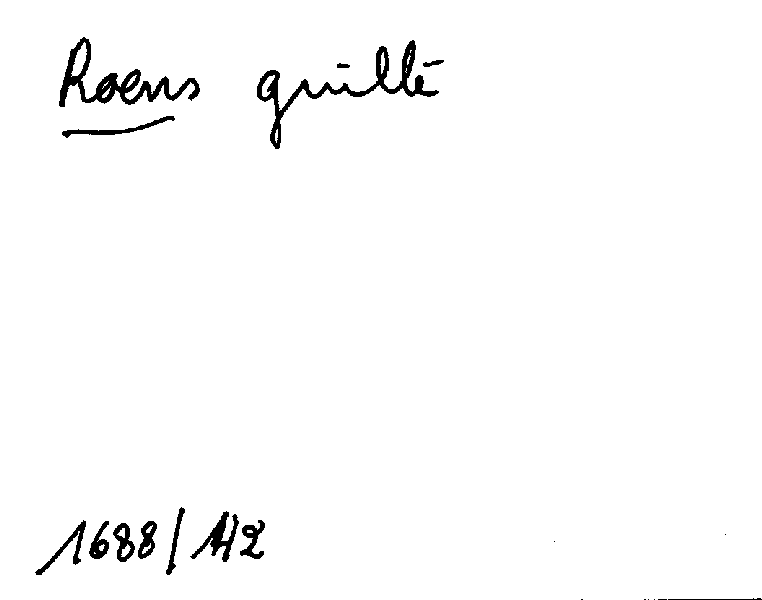 Roens guille
1688/142